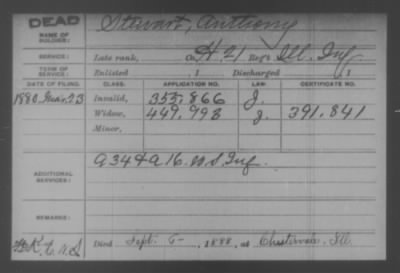 DEAD
NAME OF SOLDIER: Stewart, Anthony
SERVICE: Late rank, Co. H. 21 Reg't Ill. Inf
TERM OF SERVICE: Enlisted , 1 Discharged , 1
DATE OF FILING. CLASS. APPLICATION NO. LAW. CERTIFICATE NO.
1880 Mar. 23 Invalid, 353.866 J.
Widow, 449.998 J. 391.841
Minor,
ADDITIONAL SERVICES: A 34 & A 16. U.S. Inf
REMARKS:
Died Sept. 6- , 1888, at Chesterville, Ill.